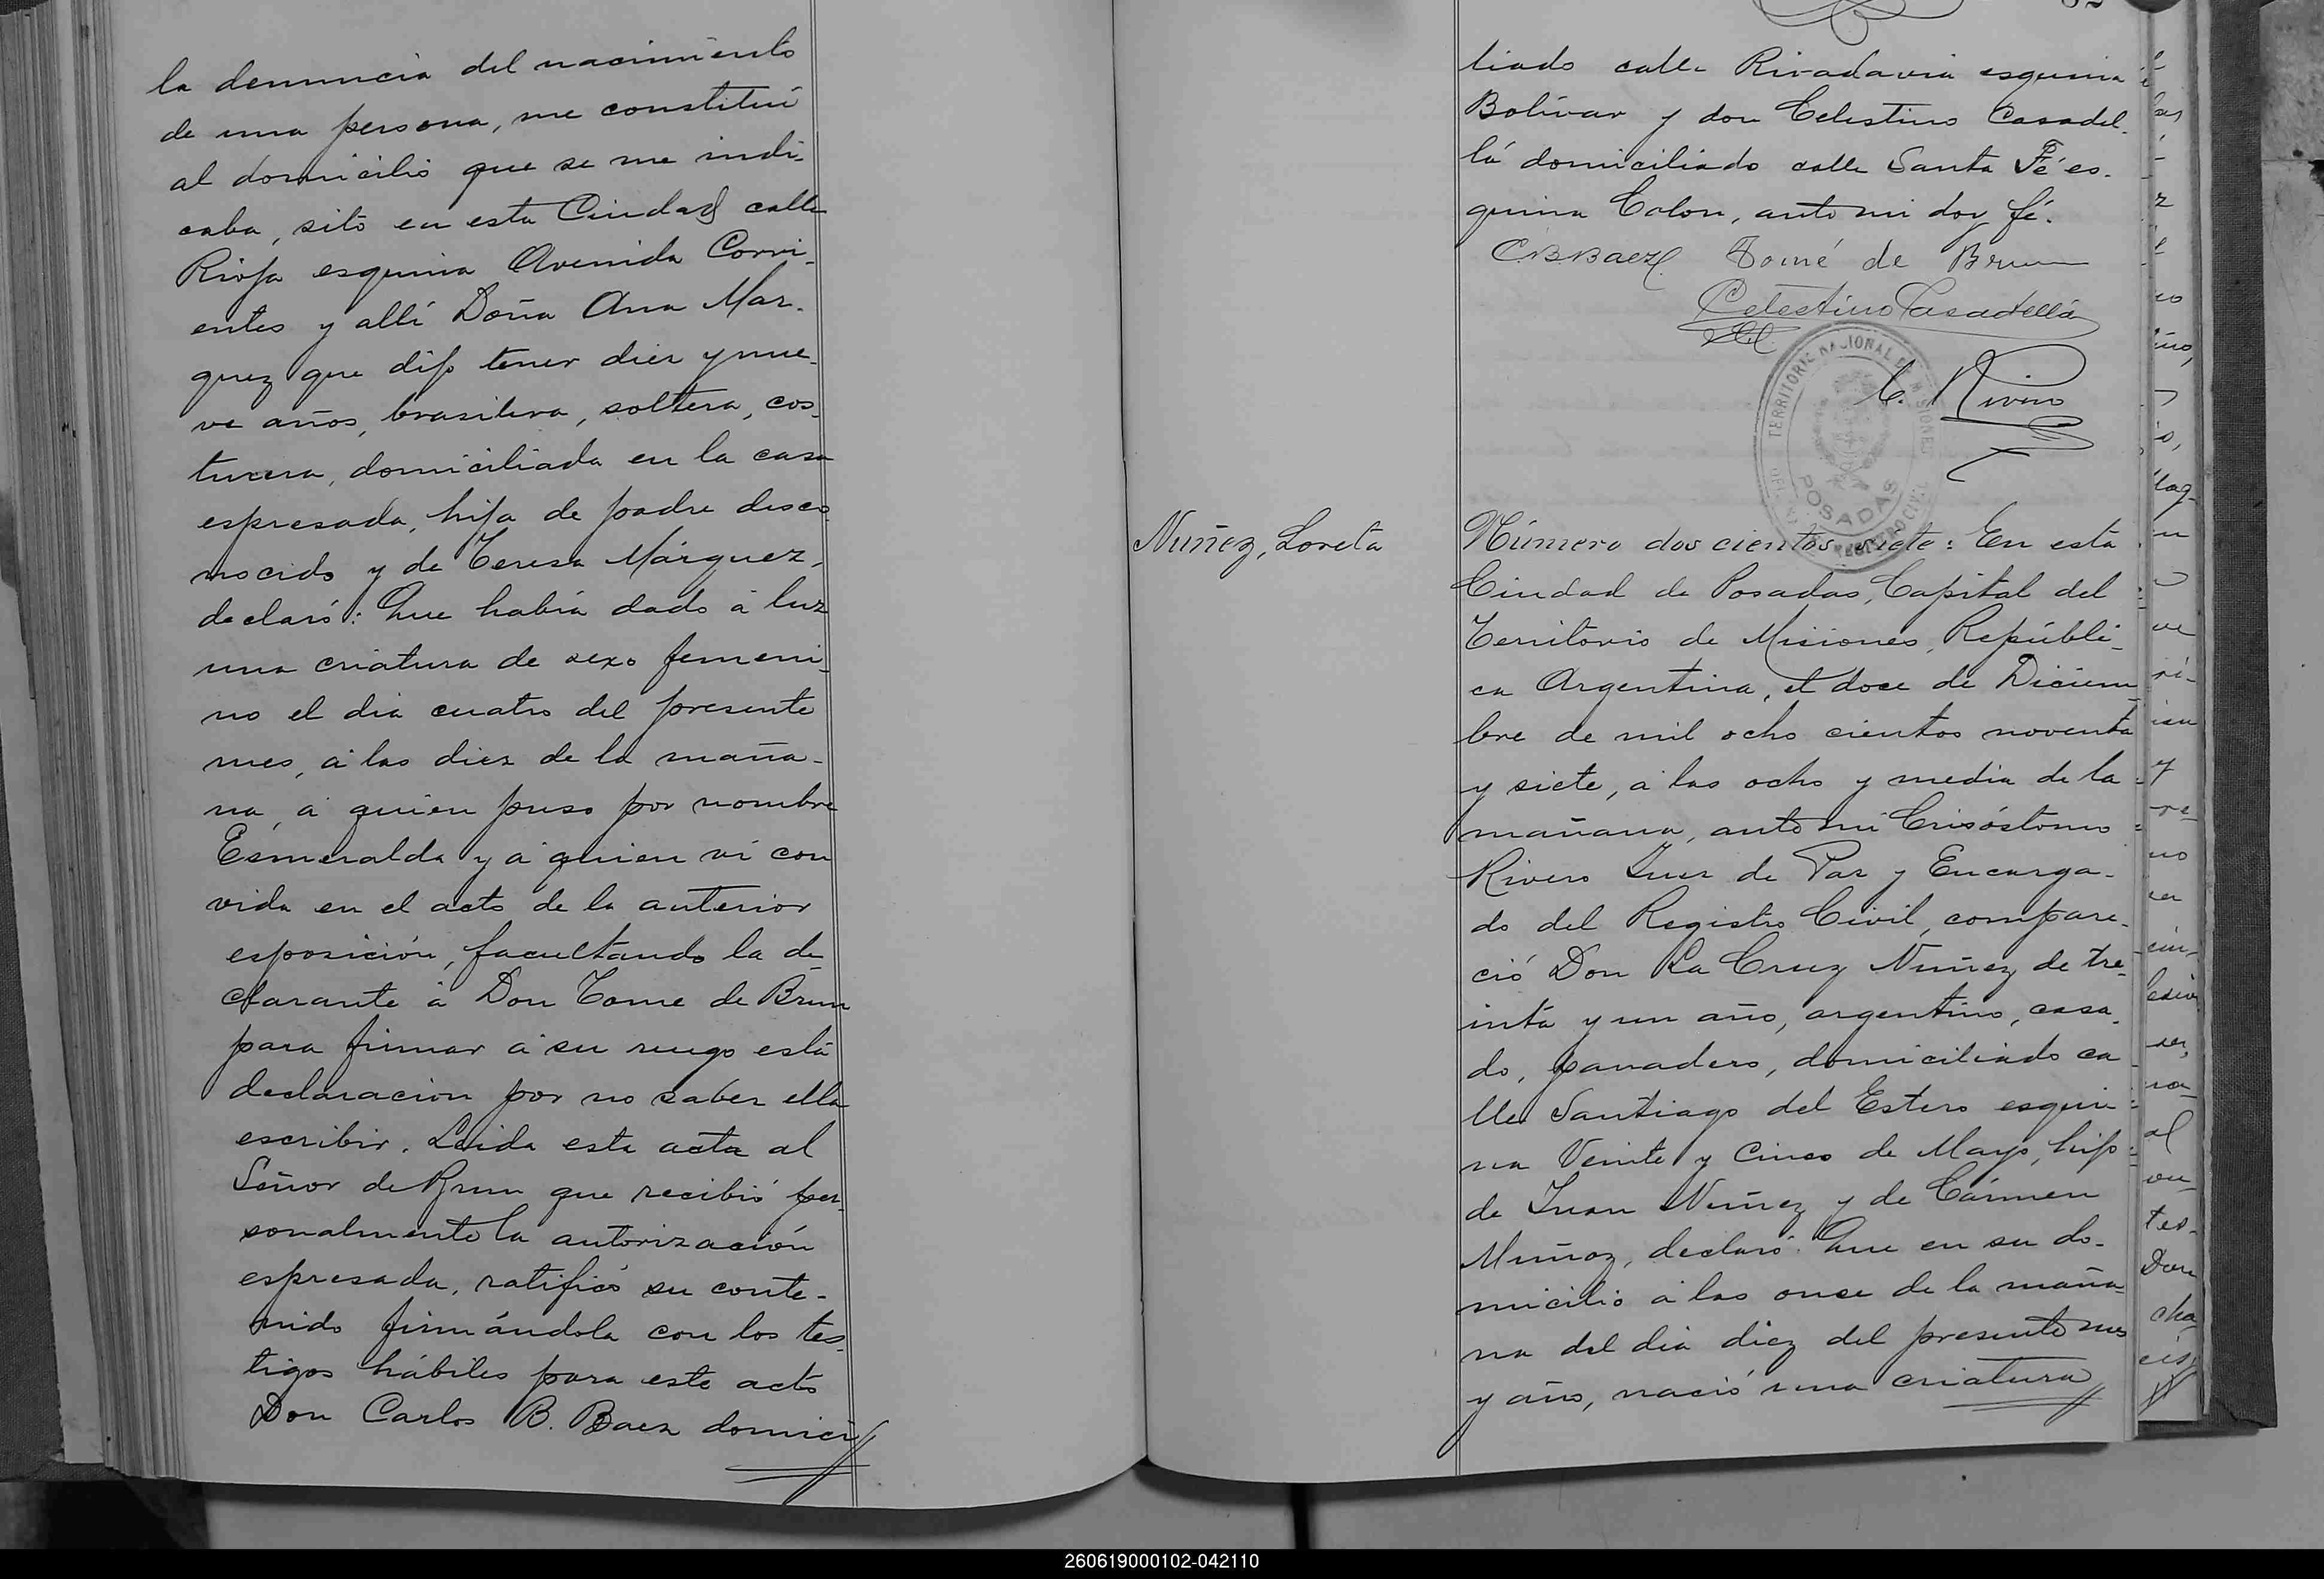 la denuncia del nacimiento
de una persona, me constituí
al domicilio que se me indi-
caba, sito en esta Ciudad calle
Rioja esquina Avenida Corri-
entes y allí Doña Ana Mar-
quez que dijo tener diez y nue-
ve años, brasilera, soltera, cos-
turera, domiciliada en la casa
espresada, hija de padre desco-
nocido y de Teresa Márquez,
declaró: Que había dado á luz
una criatura de sexo femeni-
no el dia cuatro del presente
mes, á las diez de la maña-
na, á quien puso por nombre
Esmeralda y á quien ví con
vida en el acto de la anterior
esposición, facultando la de-
clarante á Don Tome de Brum
para firmar á su ruego está
declaracion por no saber ella
escribir. Leida esta acta al
Señor de Brum que recibió per-
sonalmente la autorización
espresada, ratificó su conte-
nido firmándola con los tes-
tigos hábiles para este acto
Don Carlos B. Baez domici
liado calle Rivadavia esquina
Bolívar y don Celestino Casadel-
lá domiciliado calle Santa Fé es-
quina Colon, ante mi doy fé.
C.B.Baez Tomé de Brum
Celestino Casadellá
C. Rivero
TERRITORIO NACIONAL DE MISIONES
POSADAS
REGISTRO CIVIL
Nuñez, Loreta
Número dos cientos siete: En esta
Ciudad de Posadas, Capital del
Territorio de Misiones, Repúbli-
ca Argentina, el doce de Diciem-
bre de mil ocho cientos noventa
y siete, á las ocho y media de la
mañana, ante mi Crisóstomo
Rivero Juez de Paz y Encarga-
do del Registro Civil, compare-
ció Don La Cruz Nuñez de tre-
inta y un año, argentino, casa-
do, panadero, domiciliado ca
lle Santiago del Estero esqui-
na Veinte y Cinco de Mayo, hijo
de Juan Nuñez y de Cármen
Muñoz, declaró: Que en su do-
micilio á las once de la maña-
na del dia diez del presente mes
y año, nació una criatura
260619000102-042110